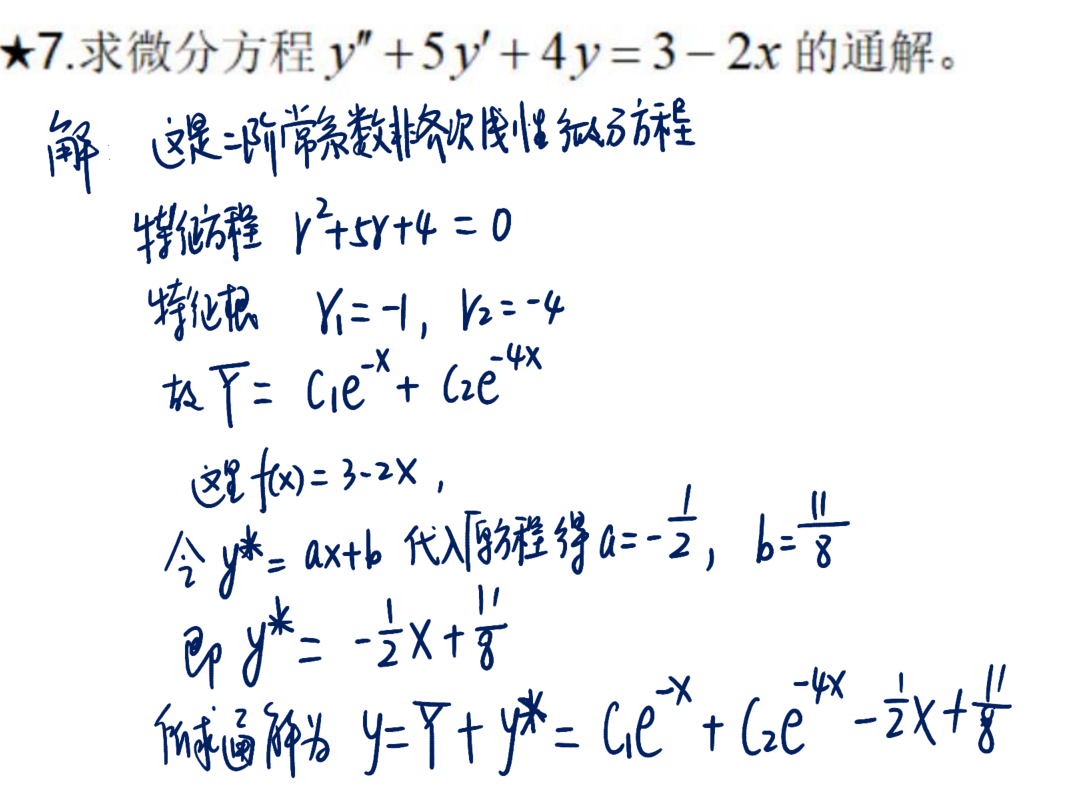 ★7.求微分方程 y″+5y′+4y=3−2x 的通解。
解 这是二阶常系数非齐次线性微分方程
特征方程 r²+5r+4=0
特征根 r₁=-1, r₂=-4
故 Y = C₁e^{-x} + C₂e^{-4x}
这里 f(x)=3-2x,
令 y*=ax+b 代入原方程得 a=-1/2, b=11/8
即 y* = -1/2 x + 11/8
所求通解为 y=Y+y* = C₁e^{-x} + C₂e^{-4x} - 1/2 x + 11/8